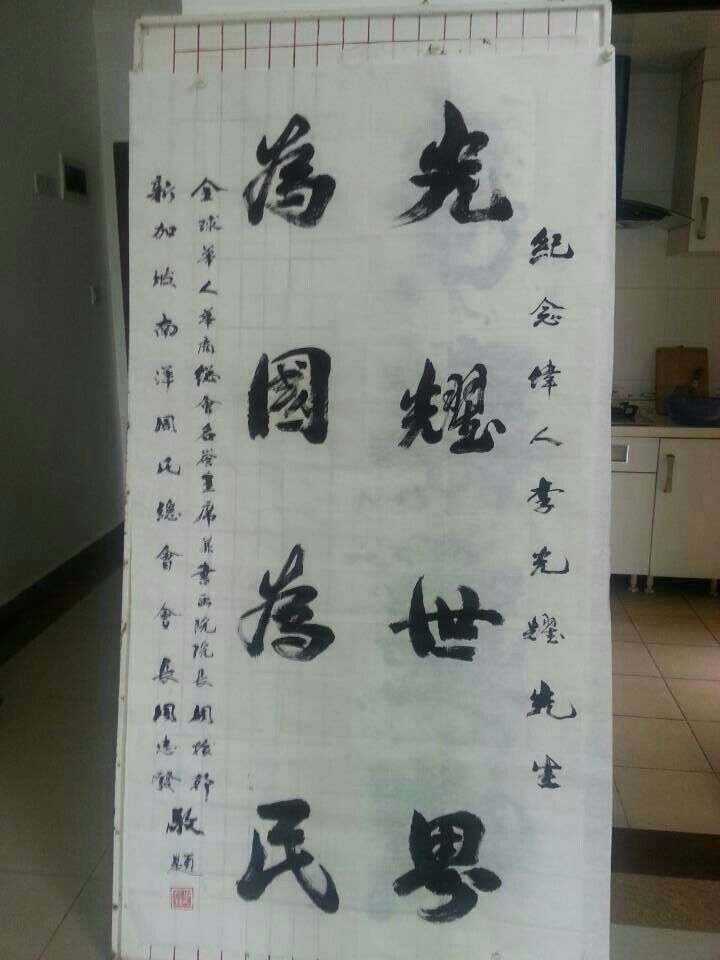 紀念偉人李光耀先生
光耀世界
為國為民
全球華人華商總會名譽主席兼書画院院長周
新加坡南洋周氏總會會長周忠發
敬題